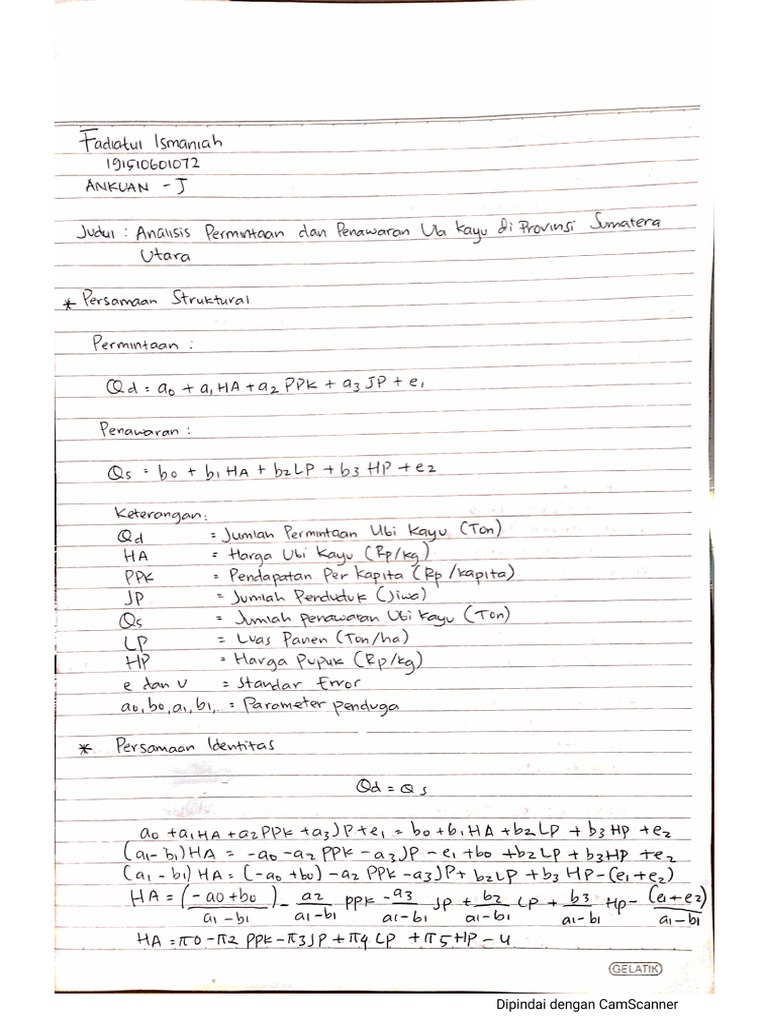 Fadiatul Ismaniah
191510601072
ANKUAN - J
Judul : Analisis Permintaan dan Penawaran Ubi Kayu di Provinsi Sumatera
Utara
* Persamaan Struktural
Permintaan :
Qd = a0 + a1HA + a2 PPK + a3 JP + e1
Penawaran :
Qs = b0 + b1HA + b2LP + b3 HP + e2
Keterangan:
Qd = Jumlah Permintaan Ubi Kayu (Ton)
HA = Harga Ubi Kayu (Rp/kg)
PPK = Pendapatan Per Kapita (Rp/kapita)
JP = Jumlah Penduduk (Jiwa)
Qs = Jumlah penawaran Ubi Kayu (Ton)
LP = Luas Panen (Ton/ha)
HP = Harga Pupuk (Rp/kg)
e dan U = Standar Error
a0, b0, a1, b1, = Parameter penduga
* Persamaan Identitas
Qd = Qs
a0 + a1HA + a2PPK + a3JP + e1 = b0 + b1HA + b2LP + b3HP + e2
(a1 - b1)HA = -a0 - a2 PPK - a3JP - e1 + b0 + b2LP + b3HP + e2
(a1 - b1) HA = (-a0 + b0) - a2 PPK - a3JP + b2LP + b3 HP - (e1 + e2)
HA = (-a0 + b0)/a1 - b1 - a2/a1 - b1 PPK - a3/a1 - b1 JP + b2/a1 - b1 LP + b3/a1 - b1 HP - (e1 + e2)/a1 - b1
HA = π0 - π2 PPK - π3JP + π4 LP + π5HP - u
GELATIK
Dipindai dengan CamScanner